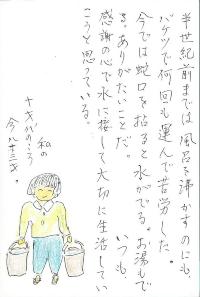 半世紀前までは、風呂を沸かすのにも、
バケツで何回も運んで苦労した。
今では蛇口を捻ると水がでる。お湯もで
る。ありがたいことだ。いつも
感謝の心で水に接して大切に生活してい
こうと思っている。
私の
十才代のころ
今八十三才。